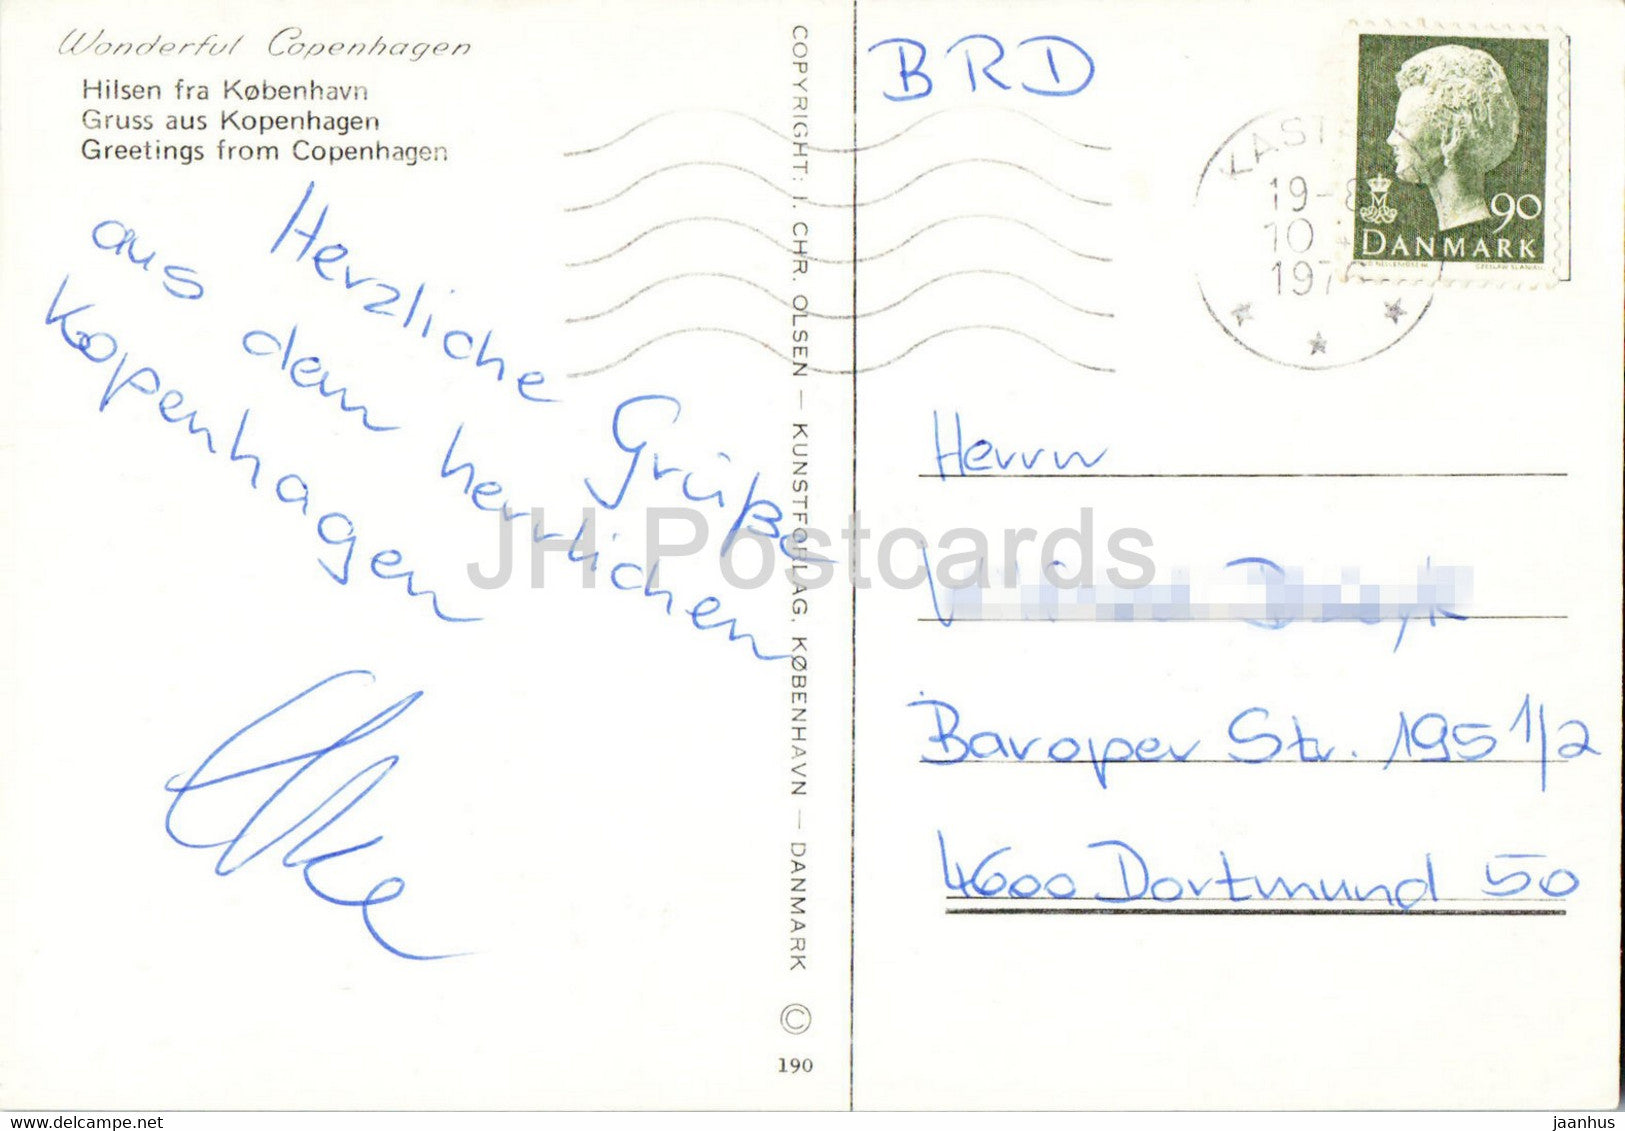 Wonderful Copenhagen
Hilsen fra København
Gruss aus Kopenhagen
Greetings from Copenhagen
Herzliche Grüße
aus dem herrlichen
Kopenhagen
Elke
COPYRIGHT: I. CHR. OLSEN — KUNSTFORLAG, KØBENHAVN — DANMARK ©
190
BRD
19-8
10
197
90
DANMARK
CZESLAW SLANIA
Herrn
Baroper Str. 195 1/2
4600 Dortmund 50
JH Postcards
jaanhus